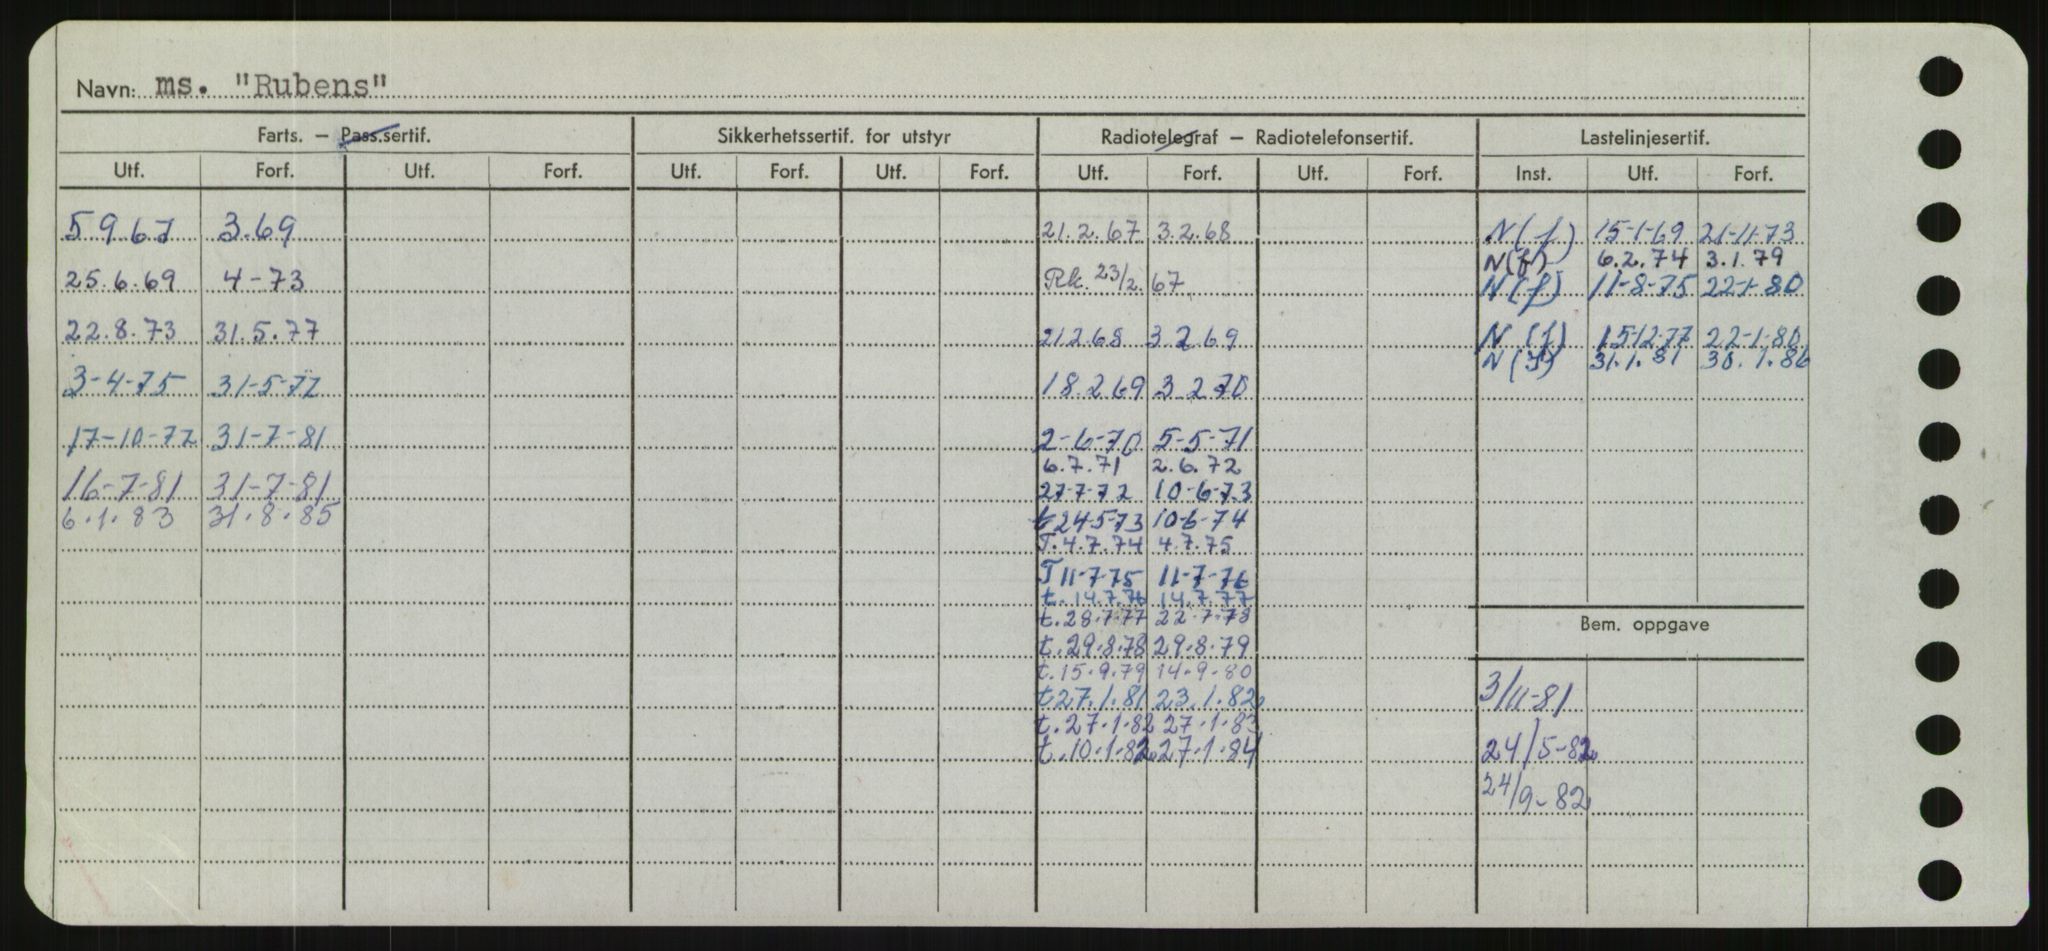 Navn: ms. "Rubens"
Farts. — Pass.sertif. Sikkerhetssertif. for utstyr Radiotelegraf — Radiotelefonsertif. Lastelinjesertif.
Utf. Forf. Utf. Forf. Utf. Forf. Utf. Forf. Utf. Forf. Utf. Forf. Inst. Utf. Forf.
5 9 67 3.69
25.6.69 4-73
22.8.73 31.5.77
3-4-75 31-5-77
17-10-77 31-7-81
16-7-81 31-7-81
6.1.83 31.8.85
21.2.67 3.2.68
Rk. 23/2.67
21 2 68 3 2 69
18.2 69 3 2 70
2-6-70 5-5-71
6.7.71 2.6.72
27-7-72 10-6-73
t 24-5-73 10-6-74
T. 4.7.74 4.7.75
T 11-7-75 11-7-76
t. 14.7.76 14.7.77
t. 28.7.77 22.7.78
t. 29.8.78 29.8.79
t. 15.9.79 14.9.80
t 27.1.81 23.1.82
t. 27.1.82 27.1.83
t. 10.1.82 27.1.84
N (f) 15-1-69 21-11-73
N (f) 6.2.74 3.1.79
N (f) 11-8-75 22-1-80
N (f) 15-12-77 22-1-80
N (f) 31.1.81 30.1.86
Bem. oppgave
3/11-81
24/5-82
24/9-82